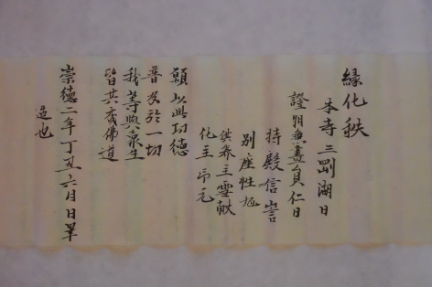 緣化秩
本寺三剛湖日
證明兼畫員仁日
持殿信訔
別座性旭
供養主靈献
化主印元
願以此功德
普及於一切
我等與衆生
皆共成佛道
崇德二年丁丑六月日畢
造也